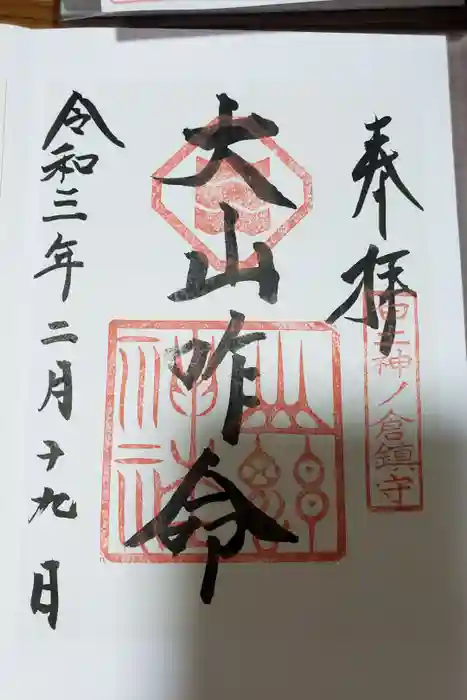 奉拝
田上神ノ倉鎮守
大山咋命
令和三年二月十九日